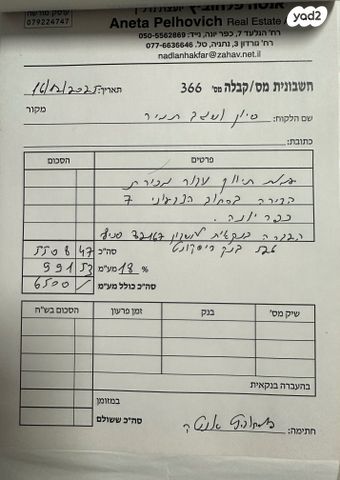 yad2
Aneta Pelhovich Real Estate
רח' הגלעד 7, כפר יונה, נייד: 050-5562869
רח' גורדון 3, נתניה, טל. 077-6636646
nadlanhakfar@zahav.net.il
עוסק מורשה
079224747
חשבונית מס/קבלה מס' 366
תאריך:
מקור
שם הלקוח:
כתובת:
פרטים הסכום
עמלת תיווך עבור מכירת
הדירה ברחוב 7
כפר יונה.
העברה בנקאית 72167 סניף
בנק דיסקונט
סה"כ 5508 47
% 18 מע"מ 991 53
סה"כ כולל מע"מ 6500
שיק מס' בנק זמן פרעון הסכום בש"ח
בהעברה בנקאית
במזומן
סה"כ ששולם
חתימה: